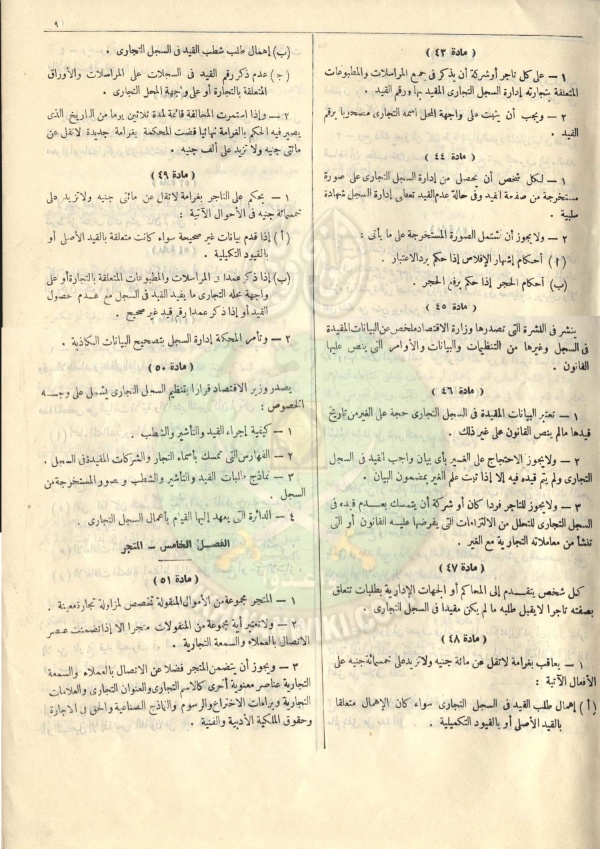 ٩
( مادة ٤٣ )
١ — على كل تاجر أو شركة أن يذكر فى جميع المراسلات والمطبوعات
المتعلقة بتجارته إدارة السجل التجارى المقيد بها ورقم القيد .
٢ — ويجب أن يثبت على واجهة المحل اسمه التجارى مصحوبا برقم
القيد .
( مادة ٤٤ )
١ — لكل شخص أن يحصل من إدارة السجل التجارى على صورة
مستخرجة من صفحة القيد وفى حالة عدم القيد تعطى إدارة السجل شهادة
سلبية .
٢ — ولا يجوز أن تشتمل الصورة المستخرجة على ما يأتى :
( ا ) أحكام إشهار الإفلاس إذا حكم برد الاعتبار .
(ب) أحكام الحجر إذا حكم برفع الحجر .
( مادة ٤٥ )
ينشر فى النشرة التى تصدرها وزارة الاقتصاد ملخص عن البيانات المقيدة
فى السجل وغيرها من التنظيمات والبيانات والأوامر التى ينص عليها
القانون .
( مادة ٤٦ )
١ — تعتبر البيانات المقيدة فى السجل التجارى حجة على الغير من تاريخ
قيدها مالم ينص القانون على غير ذلك .
٢ — ولا يجوز الاحتجاج على الغير بأى بيان واجب القيد فى السجل
التجارى ولم يتم قيده فيه إلا إذا ثبت علم الغير بمضمون البيان .
٣ — ولا يجوز للتاجر فردا كان أو شركة أن يتمسك بعدم قيده فى
السجل التجارى للتحلل من الالتزامات التى يفرضها عليه القانون أو التى
تنشأ من معاملاته التجارية مع الغير .
( مادة ٤٧ )
كل شخص يتقدم إلى المحاكم أو الجهات الإدارية بطلبات تتعلق
بصفته تاجرا لا يقبل طلبه ما لم يكن مقيدا فى السجل التجارى .
( مادة ٤٨ )
١ — يعاقب بغرامة لاتقل عن مائة جنيه ولا تزيد على خمسمائة جنيه على
الأفعال الآتية :
( أ ) إهمال طلب القيد فى السجل التجارى سواء كان الإهمال متعلقا
بالقيد الأصلى أو بالقيود التكميلية .
(ب) إهمال طلب شطب القيد فى السجل التجارى .
(ج) عدم ذكر رقم القيد فى السجلات على المراسلات والأوراق
المتعلقة بالتجارة أو على واجهة المحل التجارى .
٢ — وإذا استمرت المخالفة قائمة لمدة ثلاثين يوما من التاريخ الذى
يصير فيه الحكم بالغرامة نهائيا قضت المحكمة بغرامة جديدة لاتقل عن
مائتى جنيه ولا تزيد على ألف جنيه .
( مادة ٤٩ )
١ — يحكم على التاجر بغرامة لاتقل عن مائتى جنيه ولا تزيد على
خمسمائة جنيه فى الأحوال الآتية :
( أ ) إذا قدم بيانات غير صحيحة سواء كانت متعلقة بالقيد الأصلى أو
بالقيود التكميلية .
(ب) إذا ذكر عمدا فى المراسلات والمطبوعات المتعلقة بالتجارة أو على
واجهة محله التجارى ما يفيد القيد فى السجل مع عدم حصول
القيد أو إذا ذكر عمدا رقم قيد غير صحيح .
٢ — وتأمر المحكمة إدارة السجل بتصحيح البيانات الكاذبة .
( مادة ٥٠ )
يصدر وزير الاقتصاد قرارا بتنظيم السجل التجارى يشمل على وجه
الخصوص :
١ — كيفية إجراء القيد والتأشير والشطب .
٢ — الفهارس التى تمسك بأسماء التجار والشركات المقيدة فى السجل .
٣ — نماذج طلبات القيد والتأشير والشطب وصور المستخرجة من
السجل .
٤ — الدائرة التى يعهد إليها القيام بأعمال السجل التجارى .
الفصل الخامس — المتجر
( مادة ٥١ )
١ — المتجر مجموعة من الأموال المنقولة تخصص لمزاولة تجارة معينة .
٢ — ولا تعتبر أية مجموعة من المنقولات متجرا إلا إذا تضمنت عنصر
الاتصال بالعملاء والسمعة التجارية .
٣ — ويجوز أن يتضمن المتجر فضلا عن الاتصال بالعملاء والسمعة
التجارية عناصر معنوية أخرى كالاسم التجارى والعنوان التجارى والعلامات
التجارية وبراءات الاختراع والرسوم والنماذج الصناعية والحق فى الإجارة
وحقوق الملكية الأدبية والفنية .